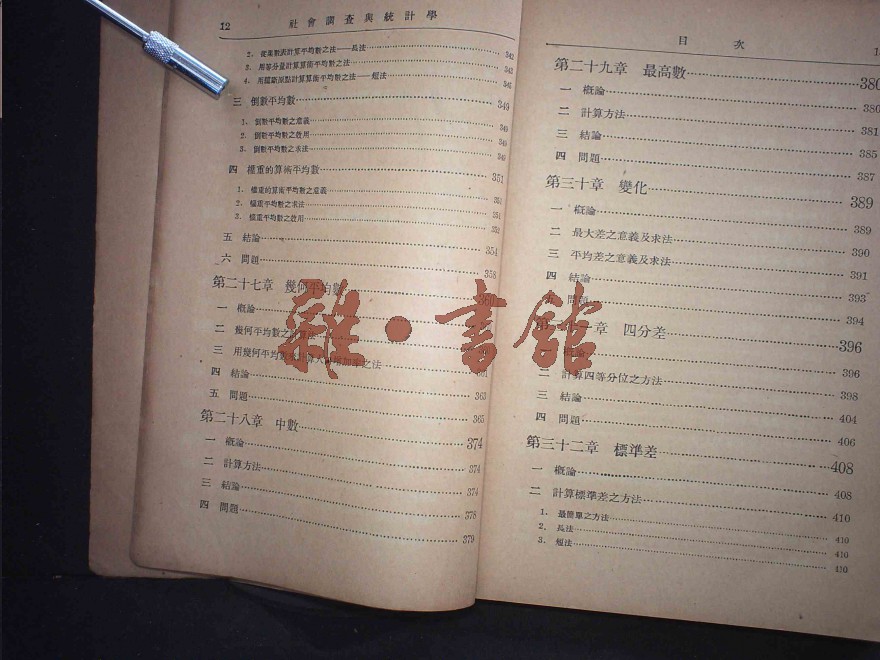 12 社會調查與統計學
2. 從集數表計算平均數之法——長法 342
3. 用等分量計算算術平均數之法 343
4. 用臆斷原點計算算術平均數之法——短法
三 倒數平均數 349
1. 倒數平均數之意義 349
2. 倒數平均數之啟用 349
3. 倒數平均數之求法 349
四 權重的算術平均數 351
1. 權重的算術平均數之意義 351
2. 權重平均數之求法 351
3. 權重平均數之啟用 352
五 結論 354
六 問題 358
第二十七章 幾何平均數 360
一 概論
二 幾何平均數之計算法
三 用幾何平均數 之法 361
四 結論 363
五 問題 365
第二十八章 中數 374
一 概論 374
二 計算方法 374
三 結論 378
四 問題 379
目次
第二十九章 最高數 380
一 概論 380
二 計算方法 381
三 結論 385
四 問題 387
第三十章 變化 389
一 概論 389
二 最大差之意義及求法 390
三 平均差之意義及求法 391
四 結論 393
五 問題 394
第三十一章 四分差 396
一 概論 396
二 計算四等分位之方法 398
三 結論 404
四 問題 406
第三十二章 標準差 408
一 概論 408
二 計算標準差之方法 410
1. 最簡單之方法 410
2. 長法 410
3. 短法 410
雜·書館